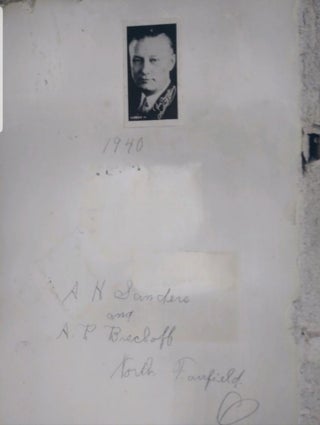 1940
A H Sanders
and
A. P. Bischoff
North Fairfield